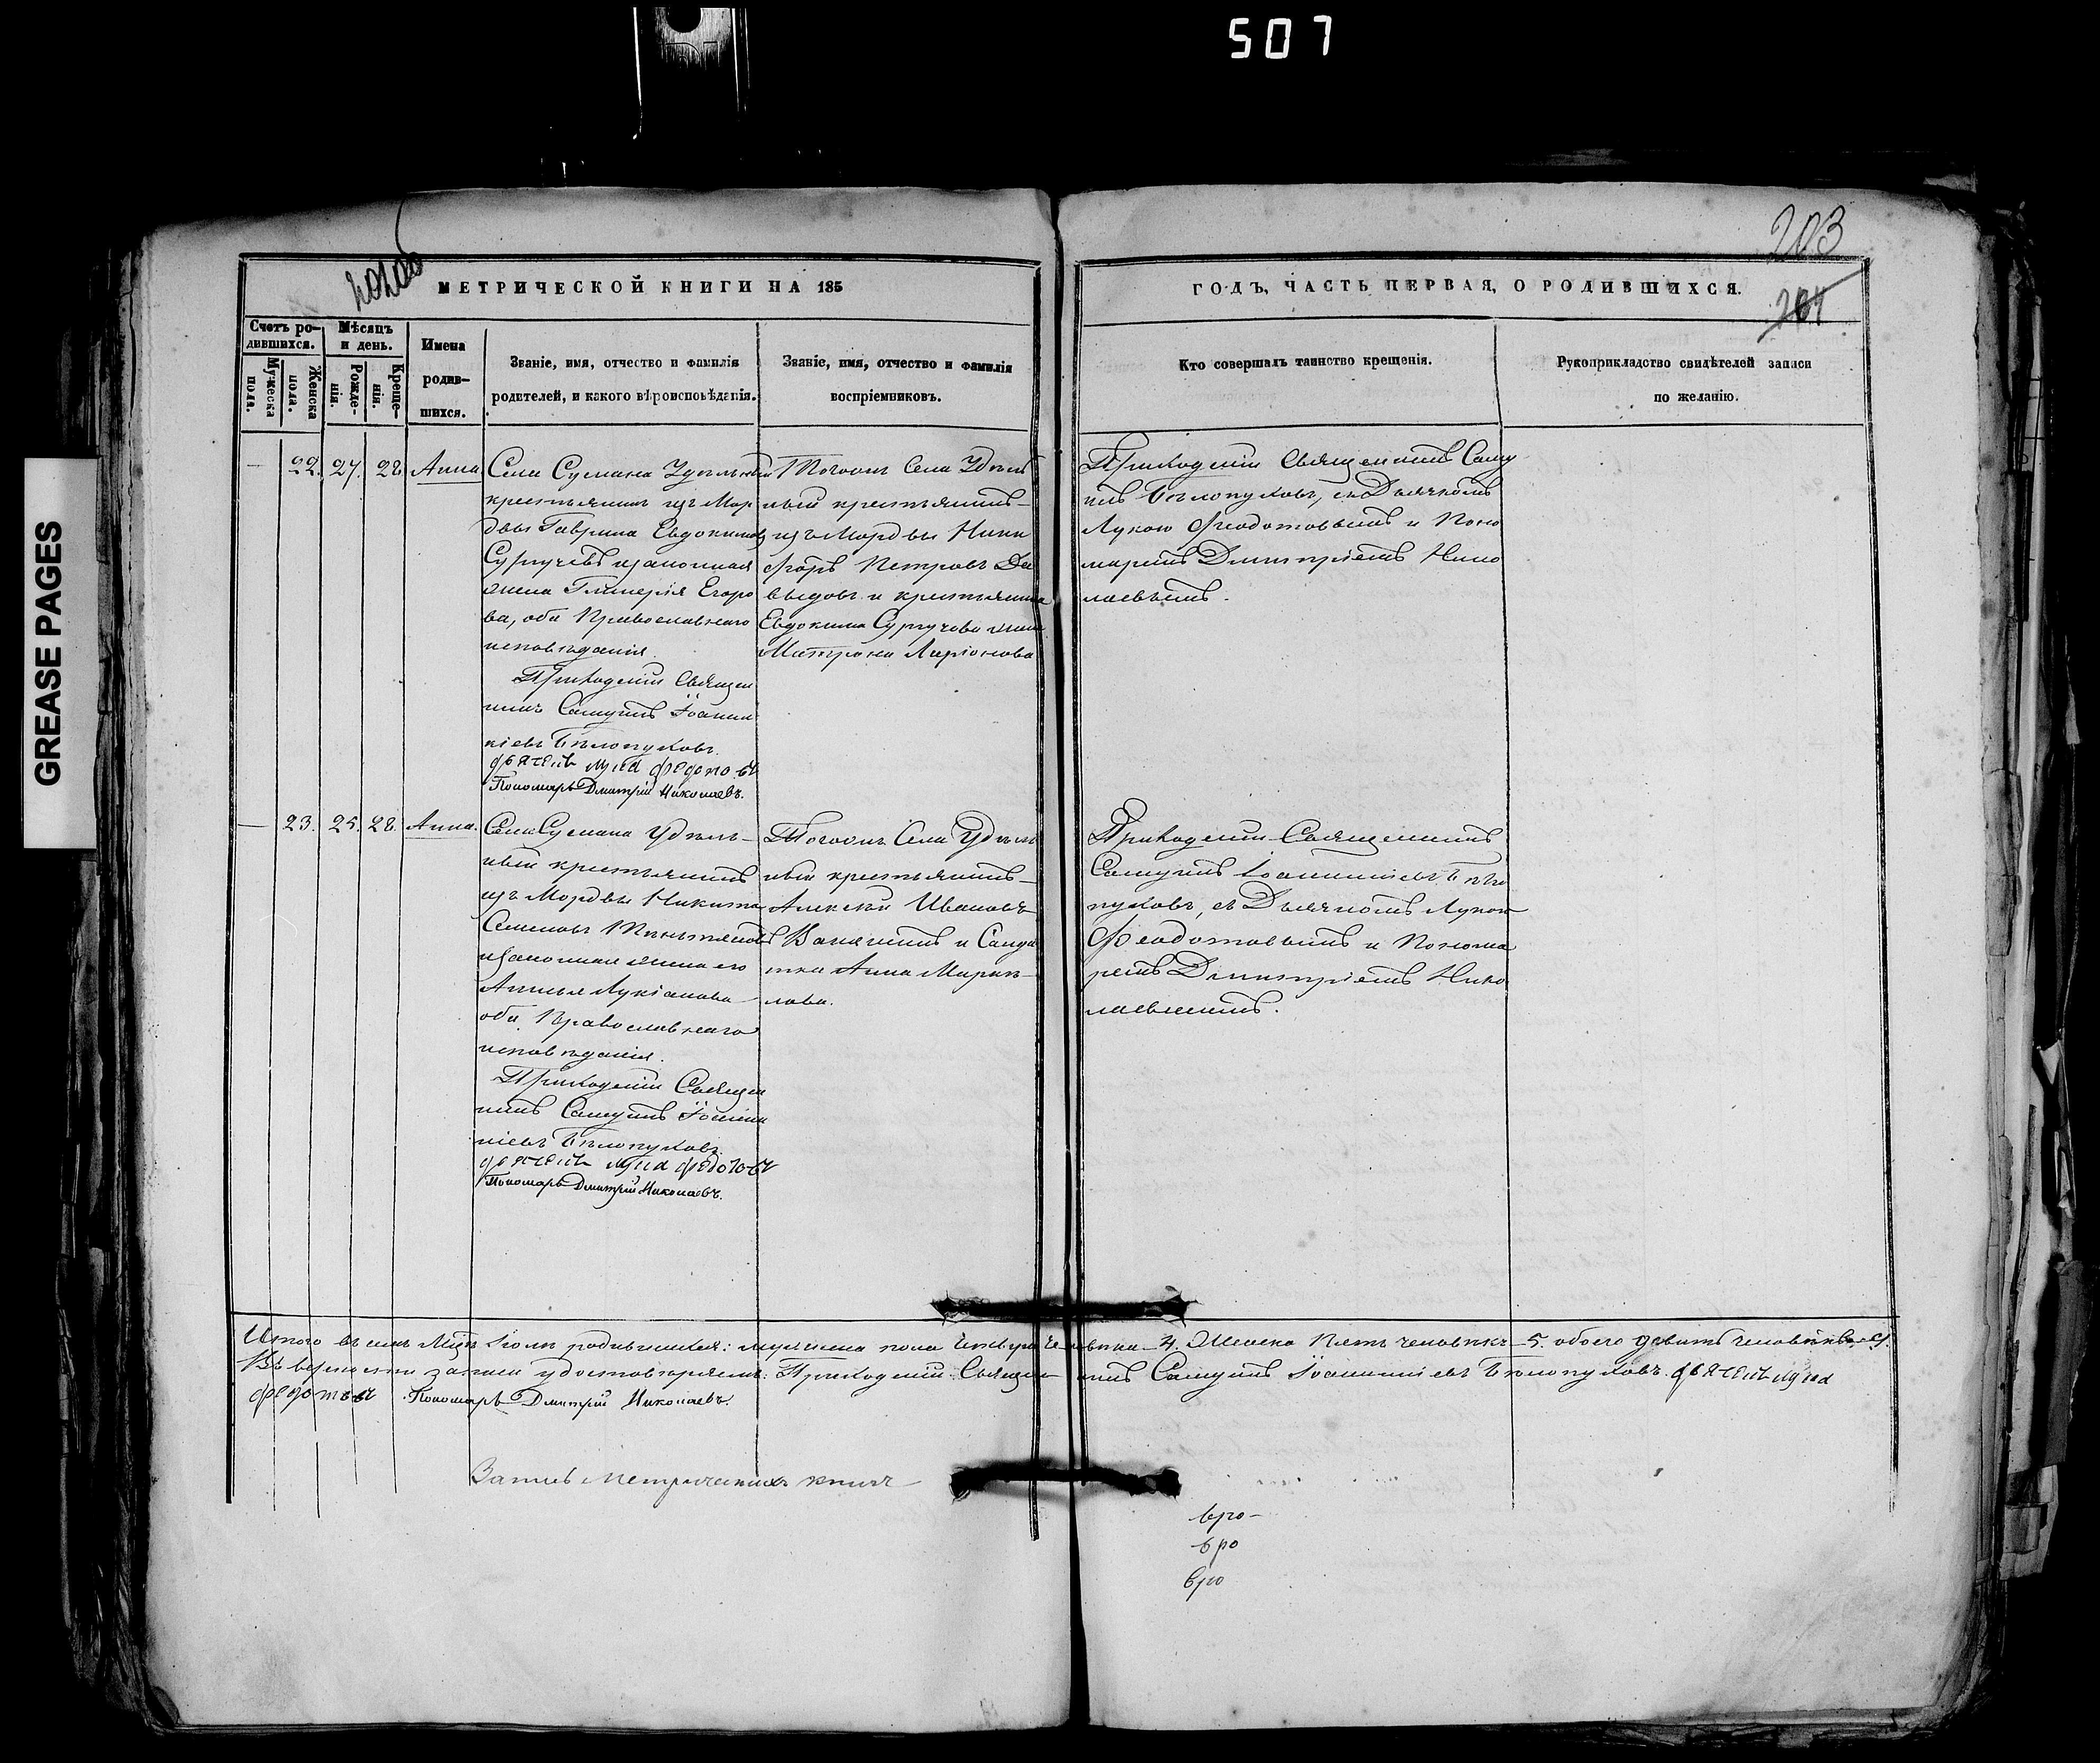 507
GREASE PAGES
203
204
202об
МЕТРИЧЕСКОЙ КНИГИ НА 185
ГОДЪ, ЧАСТЬ ПЕРВАЯ, О РОДИВШИХСЯ.
Счетъ ро-
дившихся.
Мужеска
пола.
Женска
пола.
Мѣсяцъ
и день.
Рожде-
нія.
Креще-
нія.
Имена
родив-
шихся.
Званіе, имя, отчество и фамилія
родителей, и какого вѣроисповѣданія.
Званіе, имя, отчество и фамилія
воспріемниковъ.
Кто совершалъ таинство крещенія.
Рукоприкладство свидѣтелей записи
по желанію.
— 22. 27. 28. Анна
Села Сускана Удѣльный
крестьянинъ изъ Мор
двы Гаврила Евдокимовъ
Сургучевъ и законная
жена Гликерія Егоро
ва, оба Православнаго
исповѣданія.
Приходскій Священ
никъ Самуилъ Іоанни
кіевъ Бѣлопуховъ.
дьячекъ лука федотовъ
Пономарь Дмитрій Николаевъ.
Тогожъ Села Удѣль
ный крестьянинъ
изъ Мордвы Ники
форъ Петровъ Да
выдовъ и крестьянина
Евдокима Сургучова жена
Матрона Ларіонова
Приходскій Священникъ Саму
илъ Бѣлопуховъ, съ Дьячкомъ
Лукою Феодотовымъ и Поно
маремъ Димитріемъ Нико
лаевымъ.
— 23. 25. 28. Анна.
Села Сускана Удѣль-
ный крестьянинъ
изъ Мордвы Никита
Семеновъ
и законная жена его
Лукіанова
оба Православнаго
исповѣданія.
Приходскій Священ
никъ Самуилъ Іоанни
кіевъ Бѣлопуховъ.
дьячекъ лука федотовъ
Пономарь Дмитрій Николаевъ.
Тогожъ Села Удѣль
ный крестьянинъ
Алексѣй Ивановъ
и Солда
тка Анна
лова.
Приходскій Священникъ
Самуилъ Іоанникіевъ Бѣло
пуховъ, съ Дьячкомъ Лукою
Феодотовымъ и Понома
ремъ Димитріемъ Нико
лаевымъ.
Итого въ семъ Мцѣ Іюлѣ родившихся: мужеска пола Четыре человѣка 4. Женска Пять человѣкъ 5. обоего девять человѣкъ. 9.
Въ вѣрности записи удостовѣряемъ: Приходскій Священникъ Самуилъ Іоанникіевъ Бѣлопуховъ. дьячекъ лука
федотовъ Пономарь Дмитрій Николаевъ.
Запись Метрическихъ книгъ
вро-
вро
вро